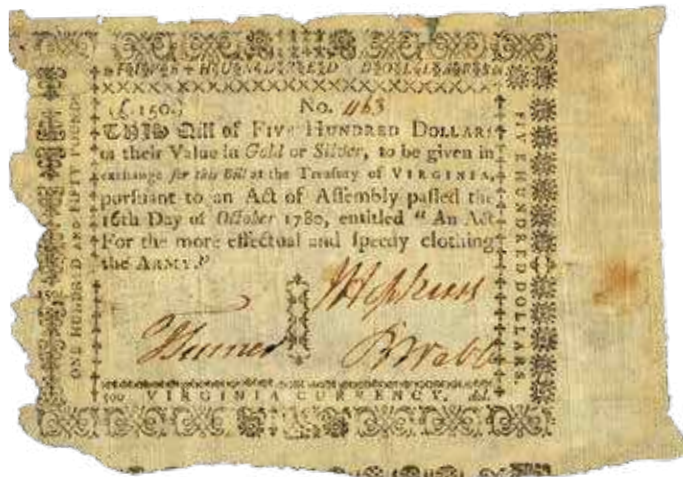 FIVE HUNDRED DOLLARS
(£.150.) No. 1163
THIS Bill of FIVE HUNDRED DOLLARS
in their Value in Gold or Silver, to be given in
exchange for this Bill at the Treasury of VIRGINIA,
pursuant to an Act of Assembly passed the
16th Day of October 1780, entitled "An Act
For the more effectual and speedy clothing
the ARMY."
J Hopkins
J Turner B Webb
500 VIRGINIA CURRENCY. dol.
ONE HUNDRED AND FIFTY POUNDS
FIVE HUNDRED DOLLARS.